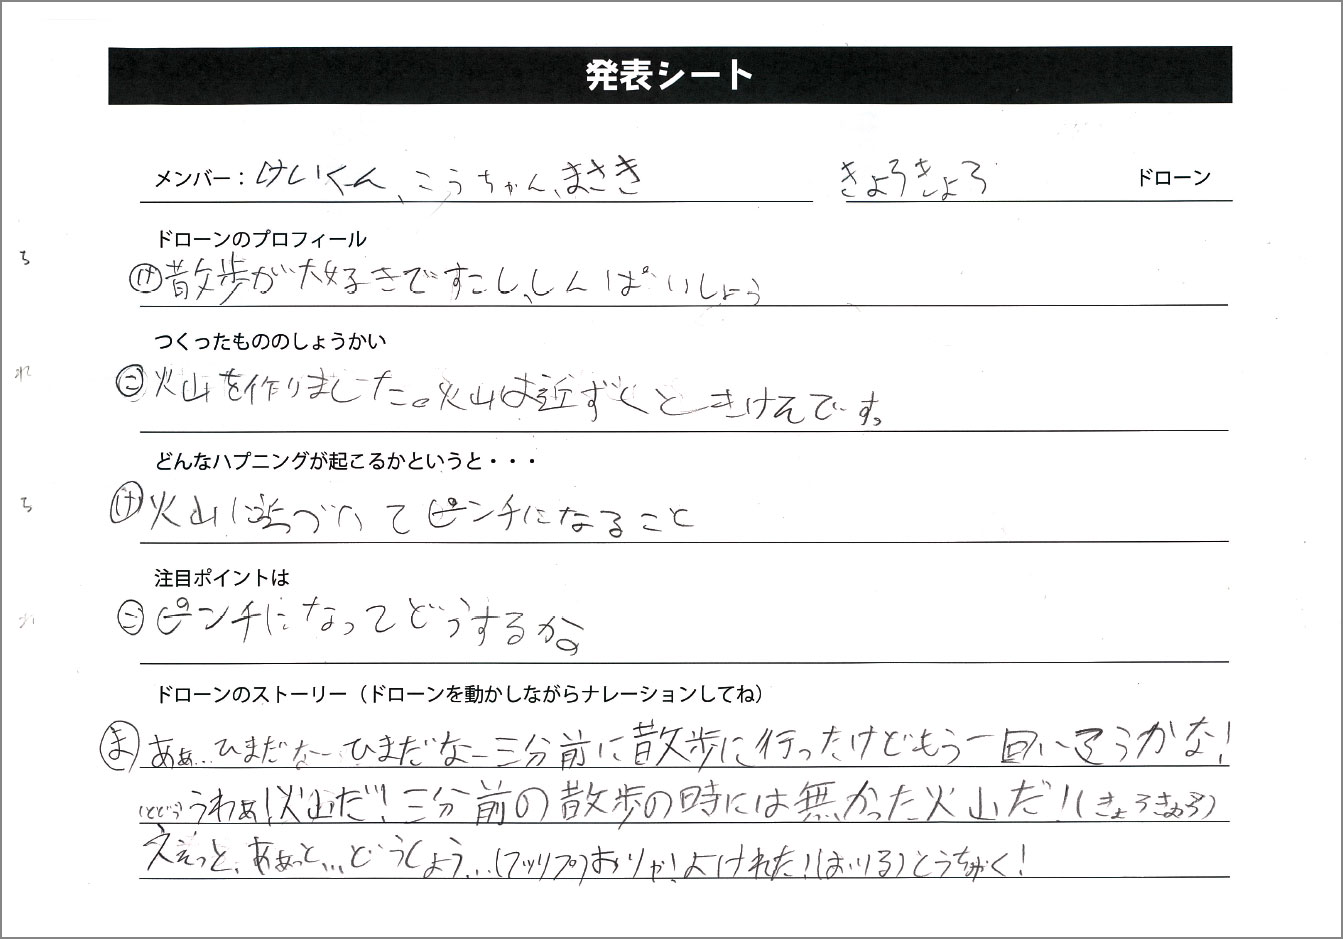 発表シート
メンバー：けいくん、こうちゃん、まさき きょろきょろ ドローン
ドローンのプロフィール
ち
け 散歩が大好きですこし、しんぱいしょう
つくったもののしょうかい
れ
こ 火山を作りました。火山は近ずくときけんです。
どんなハプニングが起こるかというと・・・
ち
け 火山に近づいてピンチになること
注目ポイントは
れ
こ ピンチになってどうするか。
ドローンのストーリー（ドローンを動かしながらナレーションしてね）
ま あぁ…ひまだなーひまだなー三分前に散歩に行ったけどもう一回いこうかな！
(とどう)うわぁ！火山だ！三分前の散歩の時には無かった火山だ！(きょろきょろ)
ええっと、ああっと…どうしよう…(フリップ)おりゃ！よけれた！(おりる)とうちゃく！